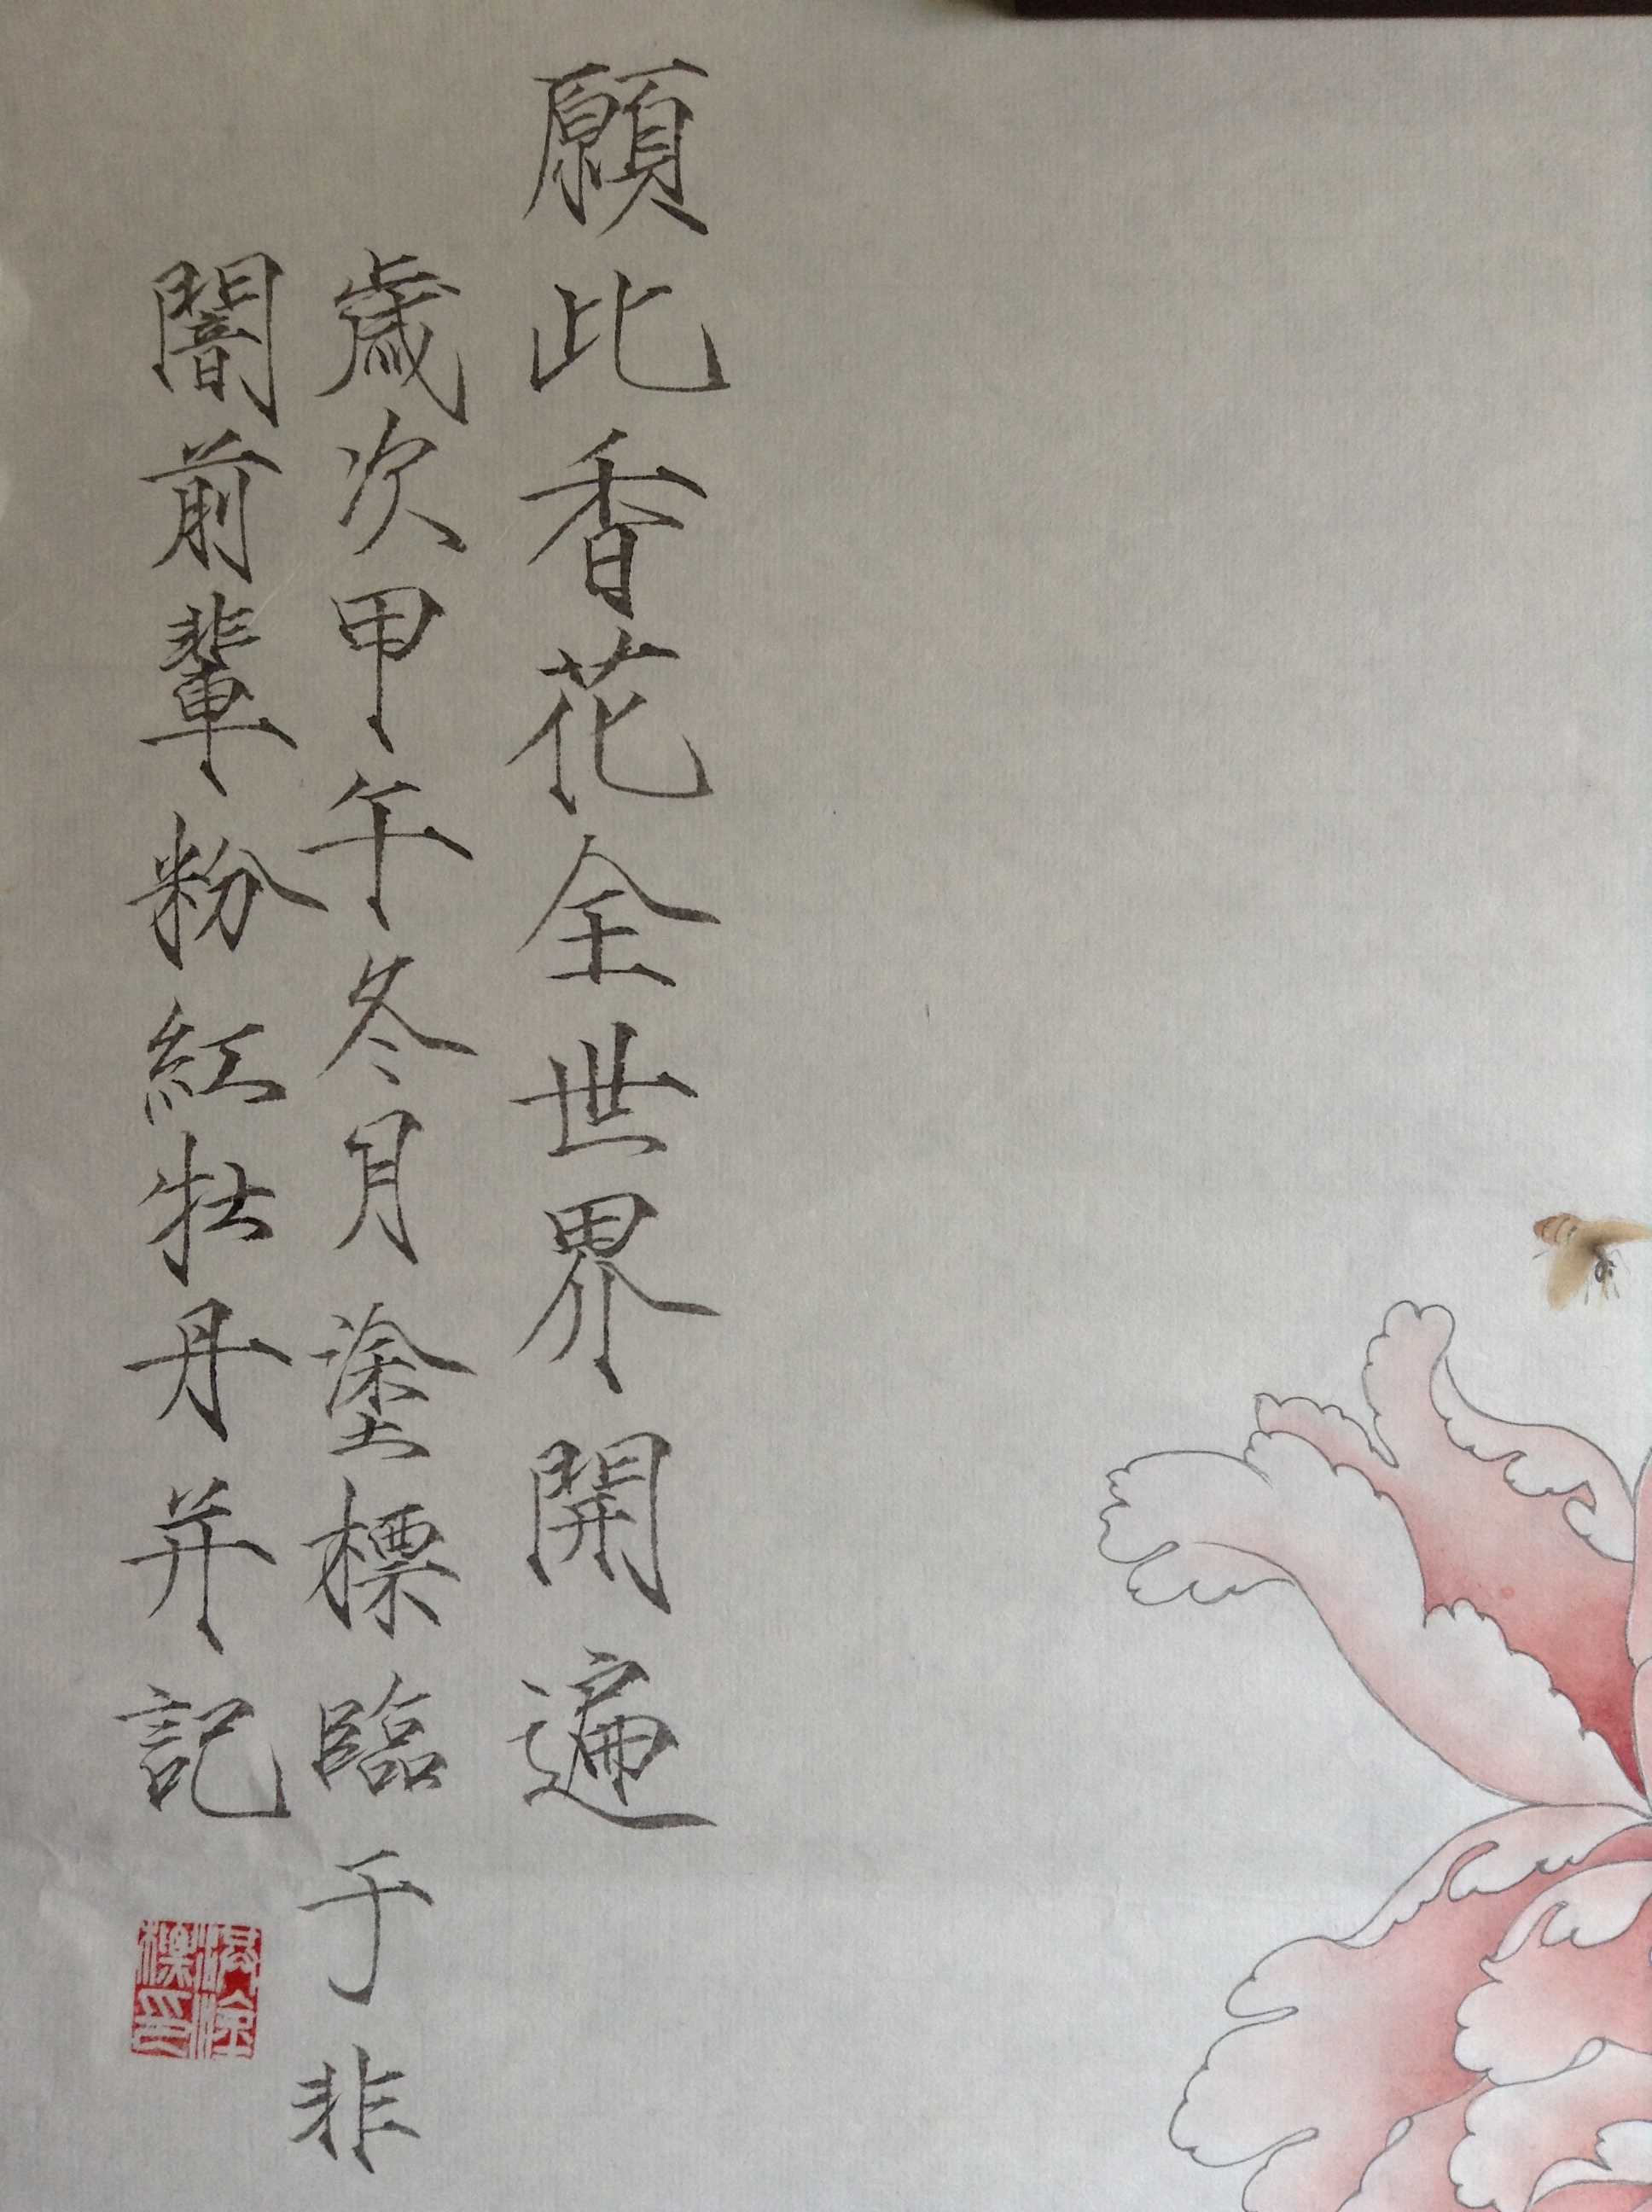 願此香花全世界開遍
歲次甲午冬月塗標臨于非
闇前輩粉紅牡丹并記